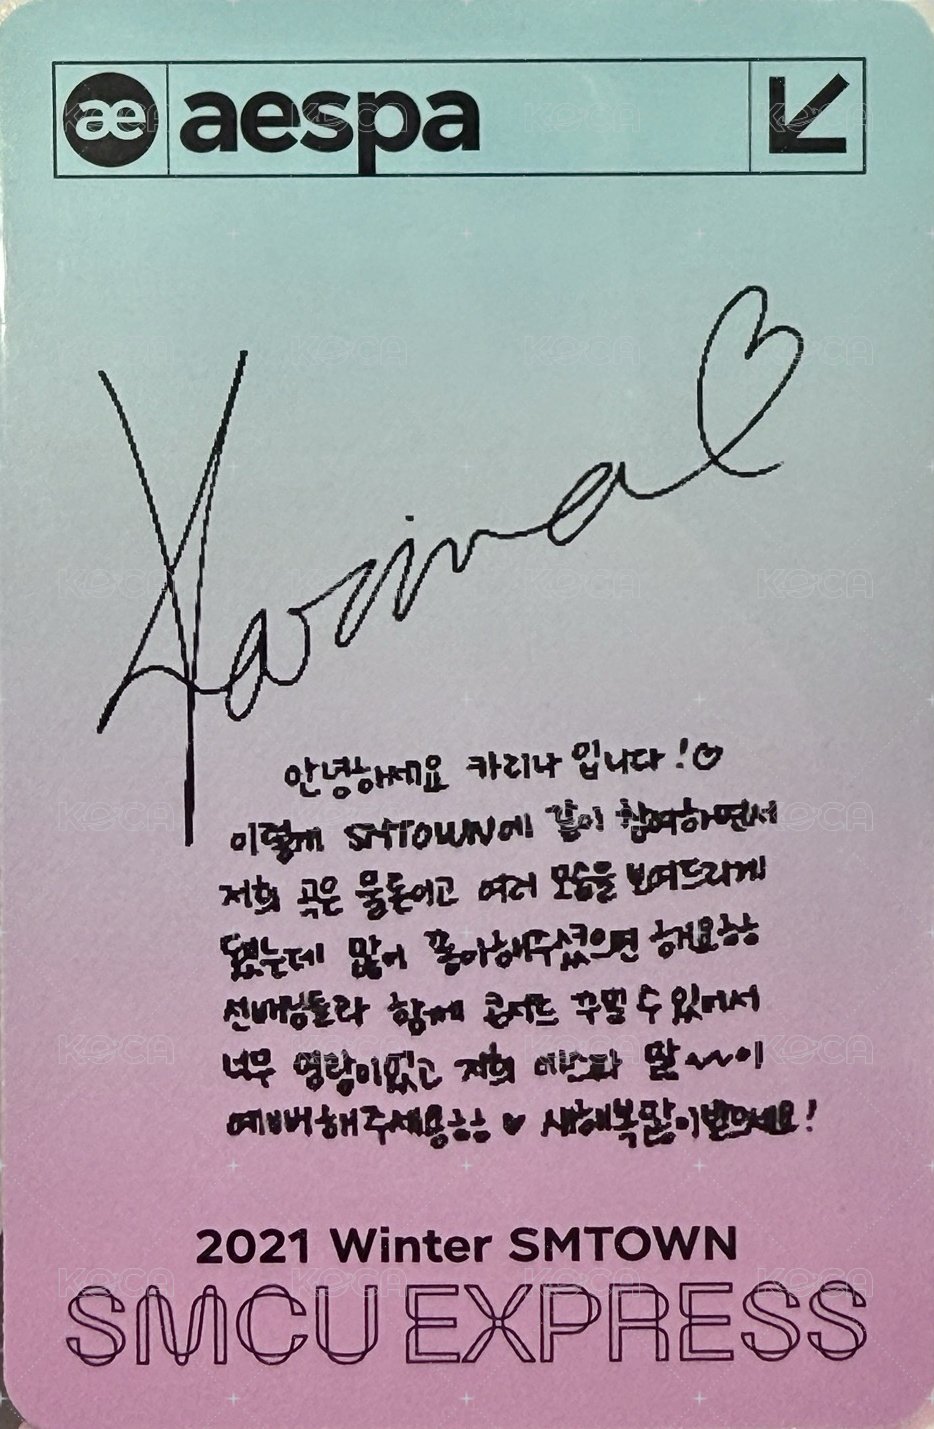 æ aespa
Karina
안녕하세요 카리나 입니다!♡
이렇게 SMTOWN에 같이 참여하면서
저희 곡은 물론이고 여러 모습을 보여드리게
됐는데 많이 좋아해주셨으면 해요ㅎㅎ
선배님들과 함께 콘서트 꾸밀 수 있어서
너무 영광이었고 저희 에스파 많~~이
예뻐해주세용ㅎㅎ ♥ 새해복많이받으세요!
2021 Winter SMTOWN
SMCU EXPRESS
KOCA